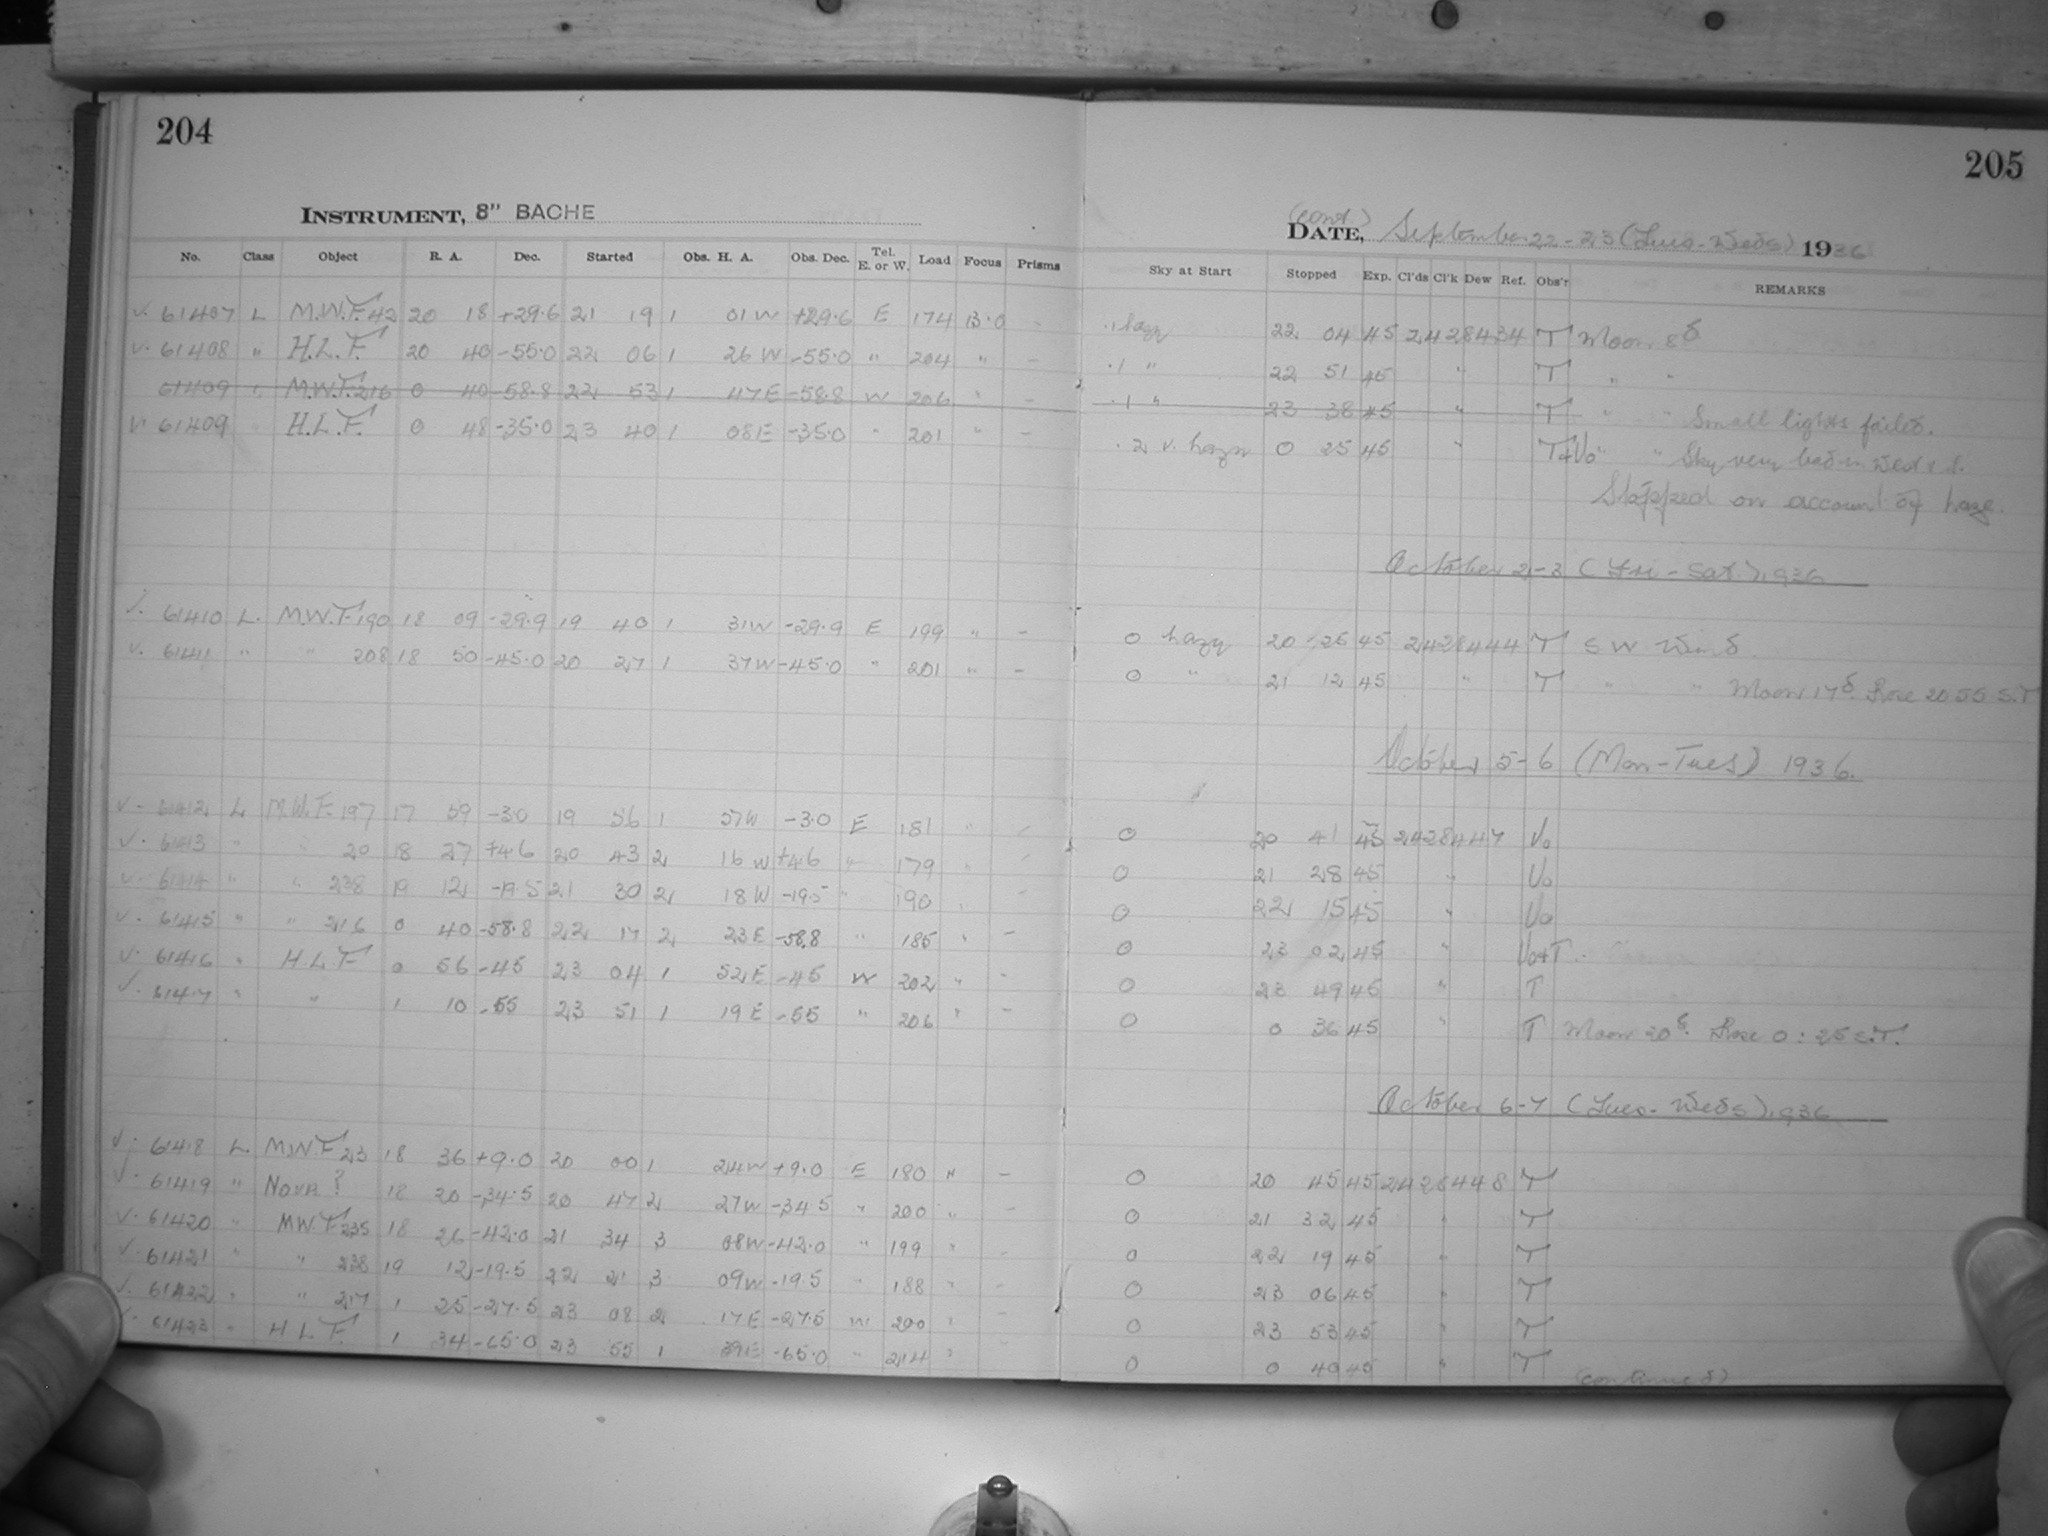 204
205
INSTRUMENT, 8" BACHE
(cont.)
DATE, September 22-23 (Tues-Weds) 1936
No. Class Object R. A. Dec. Started Obs. H. A. Obs. Dec. Tel. E. or W. Load Focus Prisms Sky at Start Stopped Exp. Cl'ds Cl'k Dew Ref. Obs'r REMARKS
v. 61407 L M.W.F. 42 20 18 +29.6 21 19 1 01 W +29.6 E 174 13.0 - .1 hazy 22 04 45 2428434 T Moon 8d
v. 61408 " H.L.F. 20 40 -55.0 22 06 1 26 W -55.0 " 204 " - .1 " 22 51 45 " T " "
61409 " M.W.F. 216 0 40 -58.8 22 53 1 47 E -58.8 W 206 " - .1 " 23 38 45 " T " " Small lights failed.
v. 61409 H.L.F. 0 48 -35.0 23 40 1 08 E -35.0 " 201 " - .2 v. hazy 0 25 45 " T+Vo " " Sky very bad in West & S.
Stopped on account of haze.
October 2-3 (Fri-Sat.), 1936
v. 61410 L. M.W.F. 190 18 09 -29.9 19 40 1 31 W -29.9 E 199 " - 0 hazy 20 25 45 2428444 T S W Wind
v. 61411 " " 208 18 50 -45.0 20 27 1 37 W -45.0 " 201 " - 0 " 21 12 45 " T " " Moon 17d. Rose 20 55 S.T
October 5-6 (Mon-Tues) 1936.
v. 61412 L M.W.F. 197 17 59 -3.0 19 56 1 57 W -3.0 E 181 " - 0 20 41 45 2428447 Vo
v. 61413 " " 20 18 27 +4.6 20 43 2 16 W +4.6 " 179 " - 0 21 28 45 " Vo
v. 61414 " " 238 19 12 -19.5 21 30 2 18 W -19.5 " 190 " - 0 22 15 45 " Vo
v. 61415 " " 216 0 40 -58.8 22 17 2 23 E -58.8 " 185 " - 0 23 02 45 " Vo+T
v. 61416 " H.L.F. 0 56 -45 23 04 1 52 E -45 W 202 " - 0 23 49 45 " T
v. 61417 " " 1 10 -55 23 51 1 19 E -55 " 206 " - 0 0 36 45 " T Moon 20d. Rose 0:25 S.T.
October 6-7 (Tues-Weds), 1936
v. 61418 L. M.W.F. 23 18 36 +9.0 20 00 1 24 W +9.0 E 180 " - 0 20 45 45 2428448 T
v. 61419 " Nova? 18 20 -34.5 20 47 2 27 W -34.5 " 200 " - 0 21 32 45 " T
v. 61420 " MWF 235 18 26 -42.0 21 34 3 08 W -42.0 " 199 " - 0 22 19 45 " T
v. 61421 " " 238 19 12 -19.5 22 21 3 09 W -19.5 " 188 " - 0 23 06 45 " T
v. 61422 " " 217 1 25 -27.5 23 08 2 17 E -27.5 W 200 " - 0 23 53 45 " T
v. 61423 " H L F. 1 34 -65.0 23 55 1 39 E -65.0 " 214 " 0 0 40 45 " T
(continued)